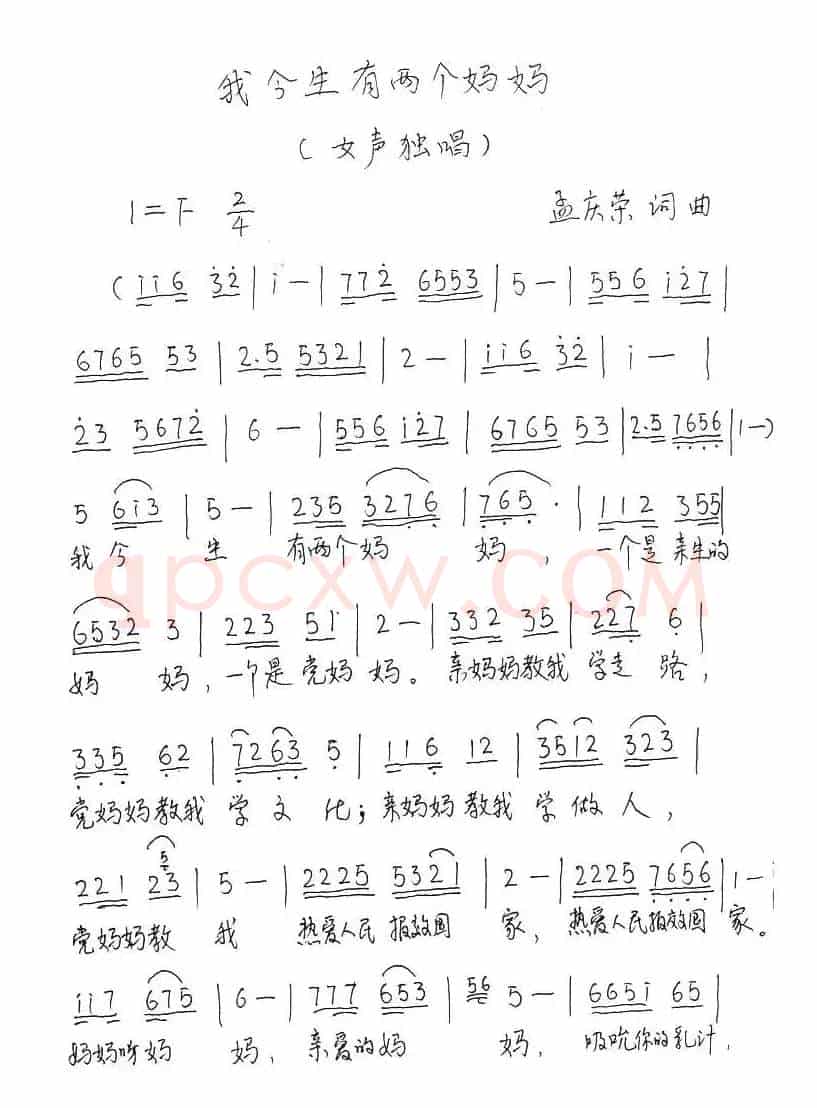 我今生有两个妈妈
(女声独唱)
1=F 2/4 孟庆荣 词曲
(i̇i̇6 3̇2̇|i̇—|772̇ 6553|5—|556 i̇2̇7|
6765 53|2.5 5321|2—|i̇i̇6 3̇2̇|i̇—|
2̇3 5672̇|6—|556 i̇2̇7|6765 53|2.5 7̣6̣5̣6̣|1—)
5 6i̇3|5—|235 3276̣|7̣6̣5̣·|112 355|
我今 生 有两个妈 妈, 一个是亲生的
6532 3|223 51|2—|332 35|227̣ 6̣|
妈 妈, 一个是党妈 妈。 亲妈妈教我 学走 路,
3̣3̣5̣ 6̣2|7̣26̣3̣ 5̣|116̣ 12|3512 323|
党妈妈教我 学文化; 亲妈妈教我 学做人,
221 23 5|5—|2225 5321|2—|2225 7̣6̣5̣6̣|1—|
党妈妈教 我 热爱人民 报效国 家, 热爱人民报效国 家。
i̇i̇7 675|6—|777 653|56 5—|665i̇ 65|
妈妈呀妈 妈, 亲爱的妈 妈, 吸吮你的乳汁,
qpcxw.com